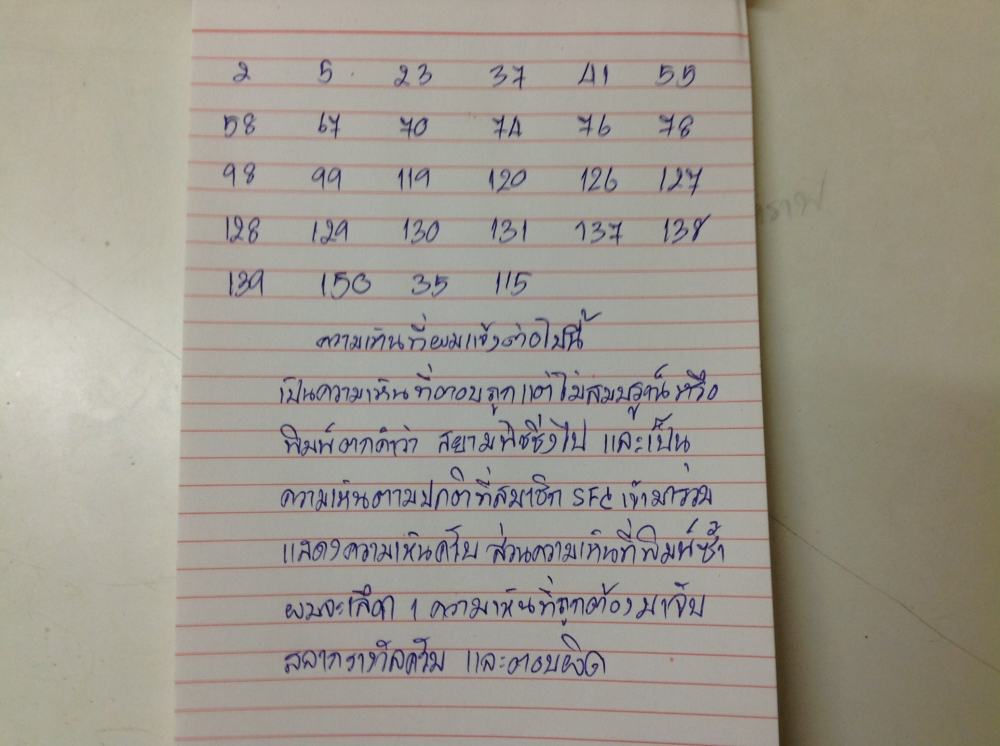 2 5 23 37 41 55
58 67 70 74 76 78
98 99 119 120 126 127
128 129 130 131 137 138
139 150 35 115
ความเห็นที่ผมแจ้งต่อไปนี้
เป็นความเห็นที่ตอบถูกแต่ไม่สมบรูณ์หรือ
พิมพ์ตกคำว่า สยามฟิชชิ่งไป และเป็น
ความเห็นตามปกติที่สมาชิก SFC เข้ามาร่วม
แสดงความเห็นครับ ส่วนความเห็นที่พิมพ์ซ้ำ
ผมจะเลือก 1 ความเห็นที่ถูกต้องมาจับ
สลากรางวัลครับ และตอบผิด